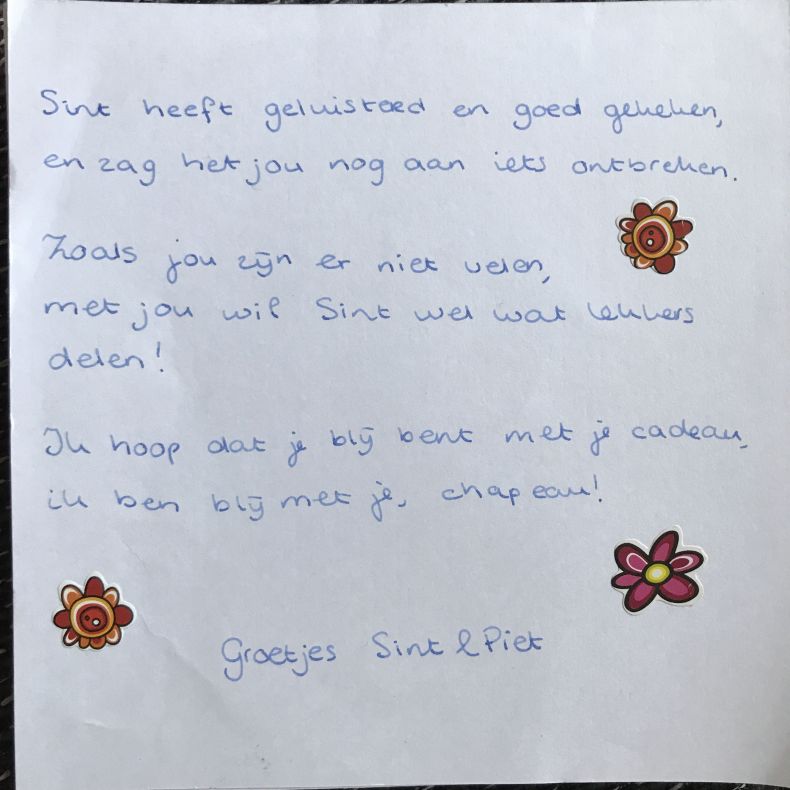 Sint heeft geluisterd en goed gekeken,
en zag het jou nog aan iets ontbreken.
Zoals jou zijn er niet velen,
met jou wil Sint wel wat lekkers
delen!
Ik hoop dat je blij bent met je cadeau,
ik ben blij met je, chapeau!
Groetjes Sint & Piet